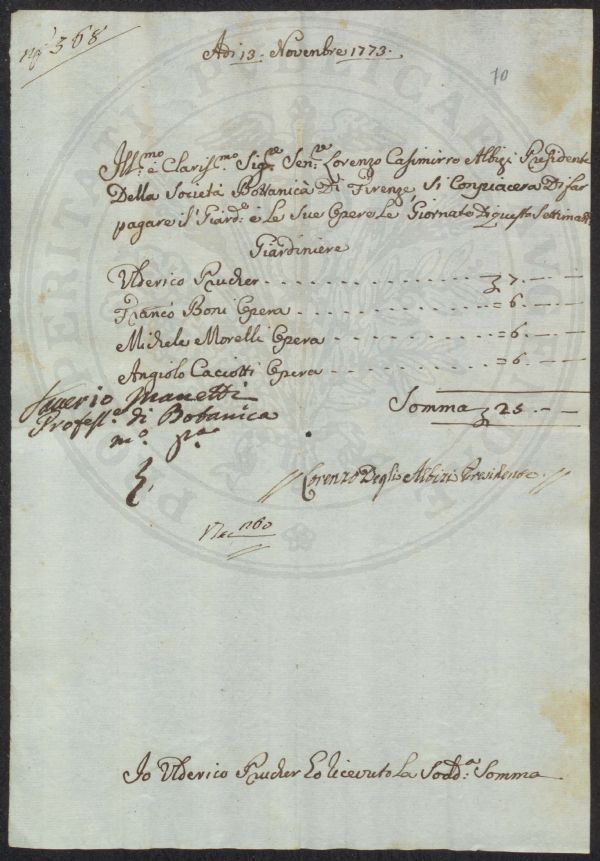 368
Adi 13. Novenbre 1773.
10
Ill:mo e Claris:mo Sig:re Sen:re Lorenzo Casimirro Albizi Presidente
Della Società Bottanica Di Firenze, Si Conpiacera Di far
pagare il Giard:e e le Sue Opere Le Giornate Di questa Settimana
Giardiniere
Ulderico Prucher 7. — —
Franco Boni Opera = 6. — —
Michele Morelli Opera = 6. — —
Angiolo Caciotti Opera = 6. — —
Somma 25 — —
Saverio Manetti
Profess:e di Botanica
m:o p:a
Lorenzo Degli Albizi Presidente
1760
Io Ulderico Prucher Ho Ricevuto La Sodd:a Somma
PROSPERITATI PUBLICAE AUGENDAE